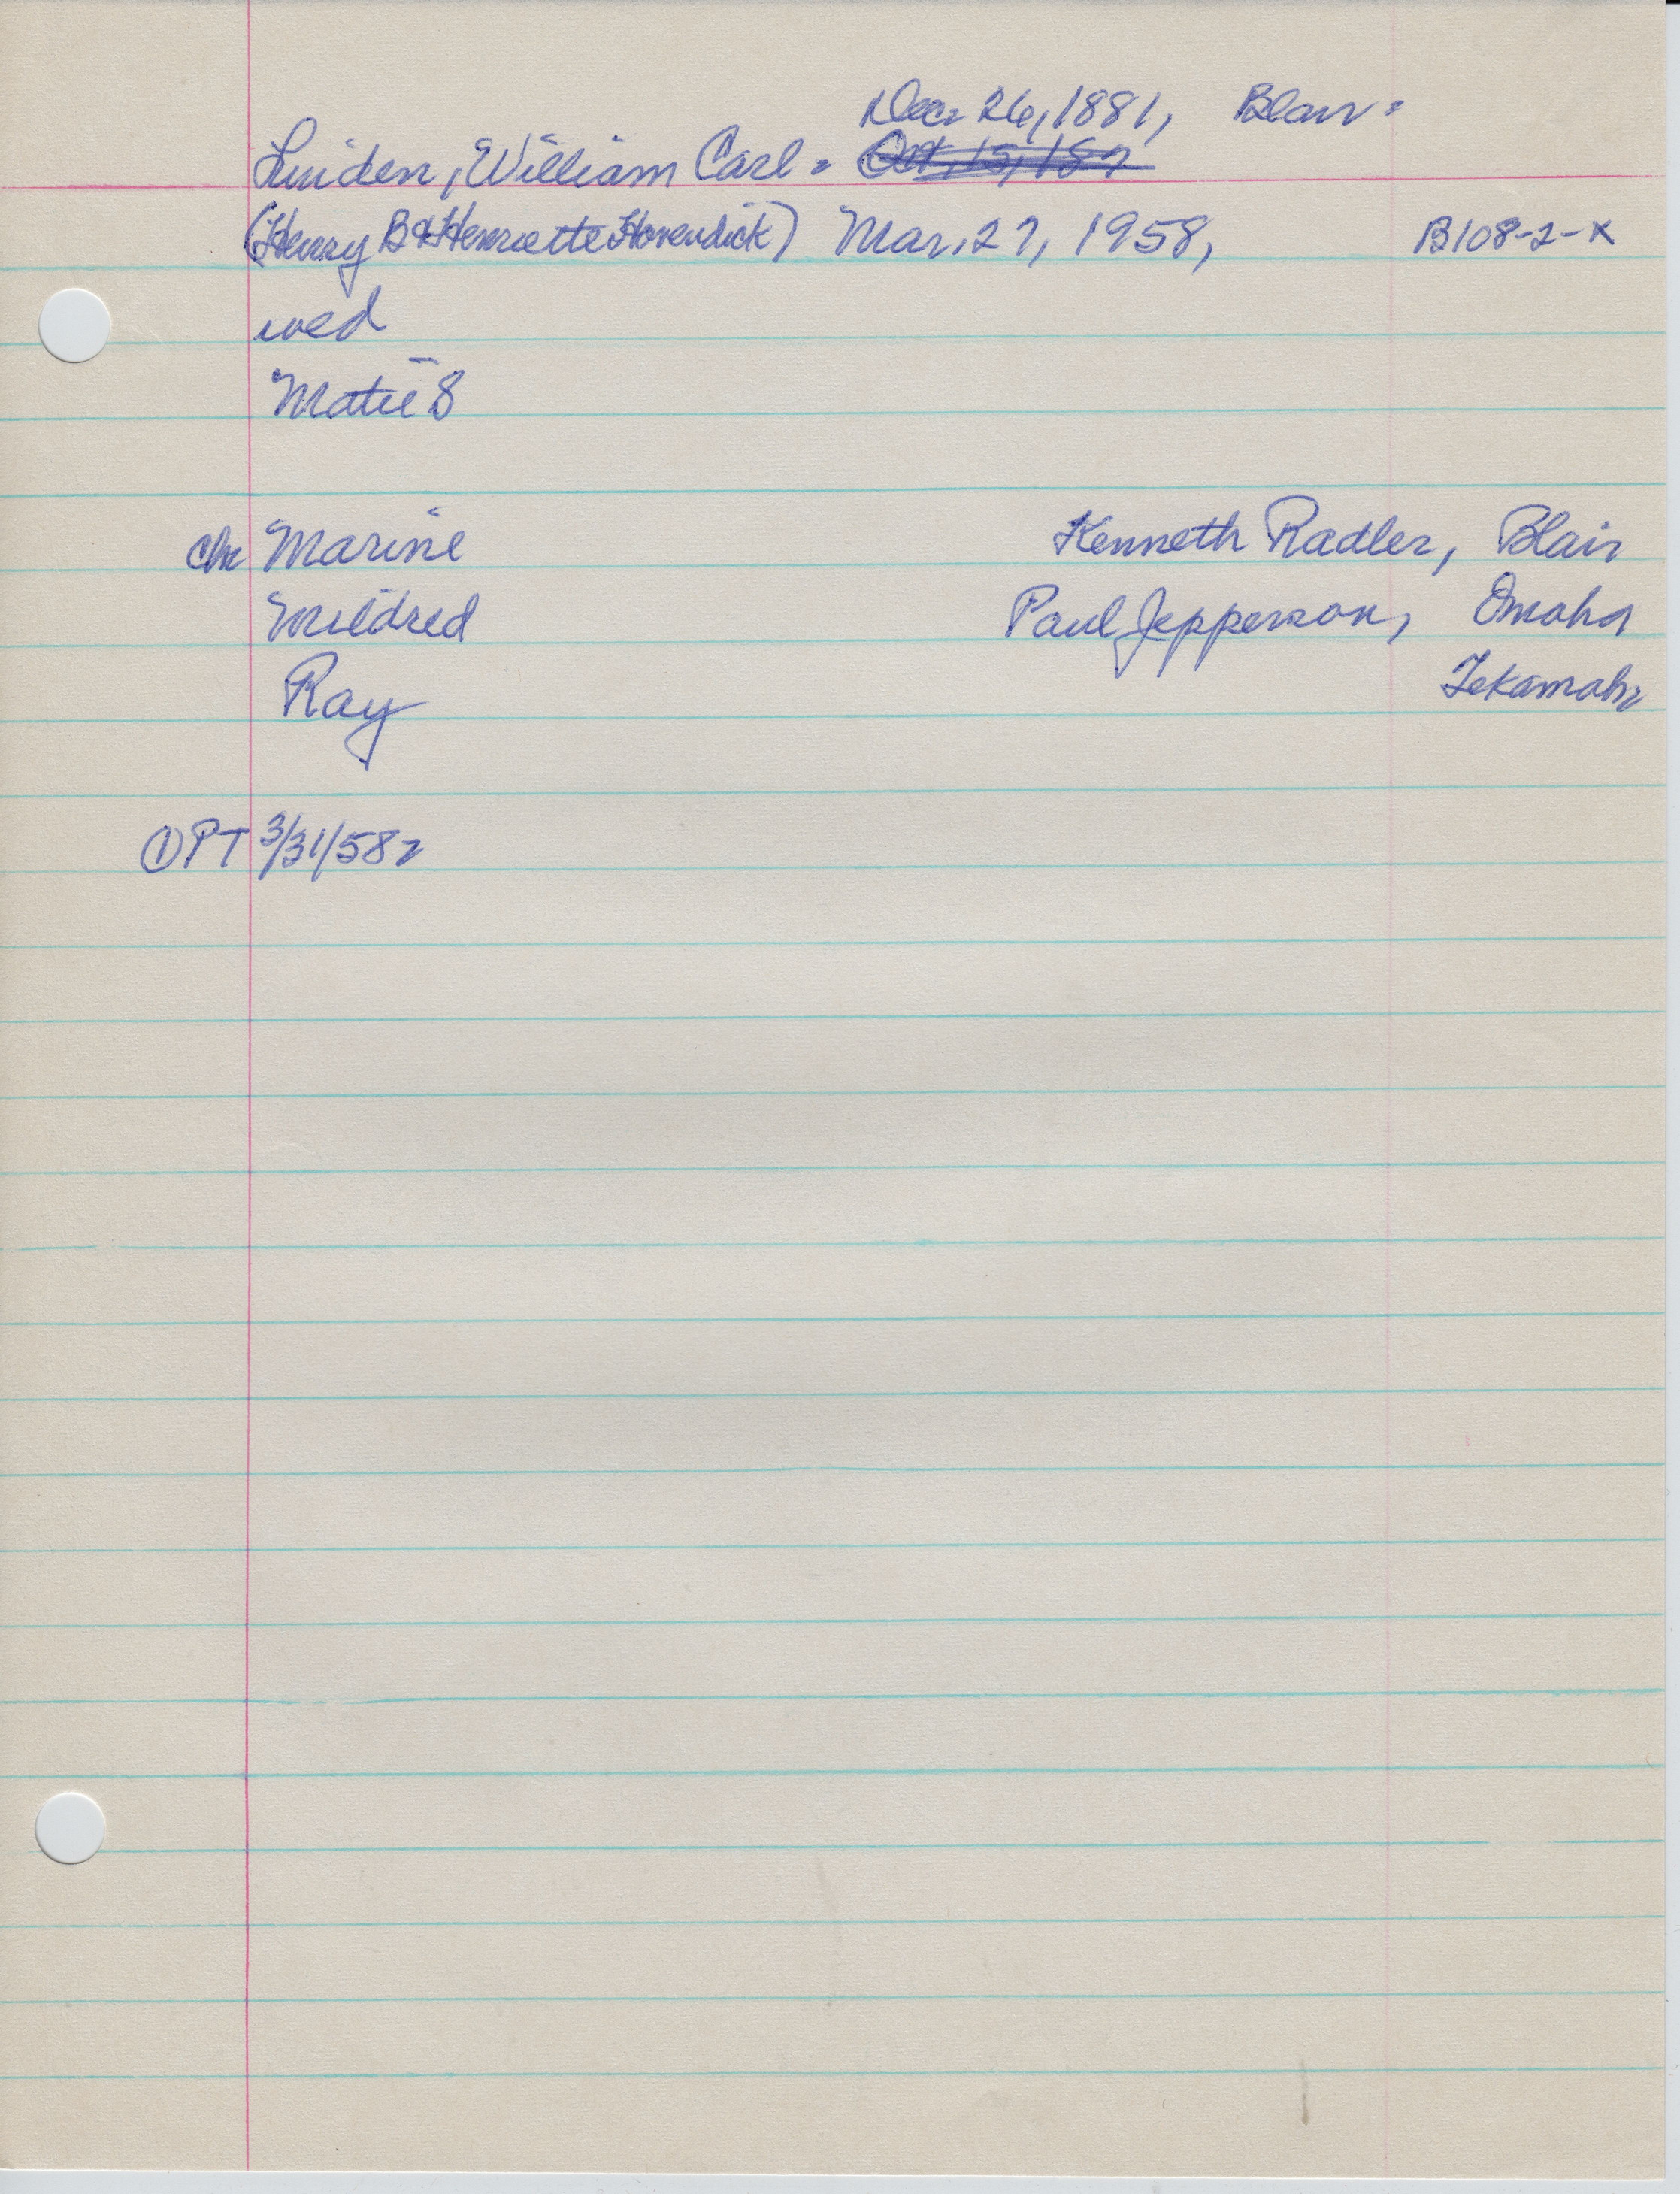 Dec 26, 1881, Blair -
Linden, William Carl - Oct. 15, 187
(Henry B & Henriette Hovendick) Mar. 27, 1958, B108-2-X
wed
Matie S
ch Marine Kenneth Radler, Blair
Mildred Paul Jepperson, Omaha
Ray Tekamah
① PT 3/31/58